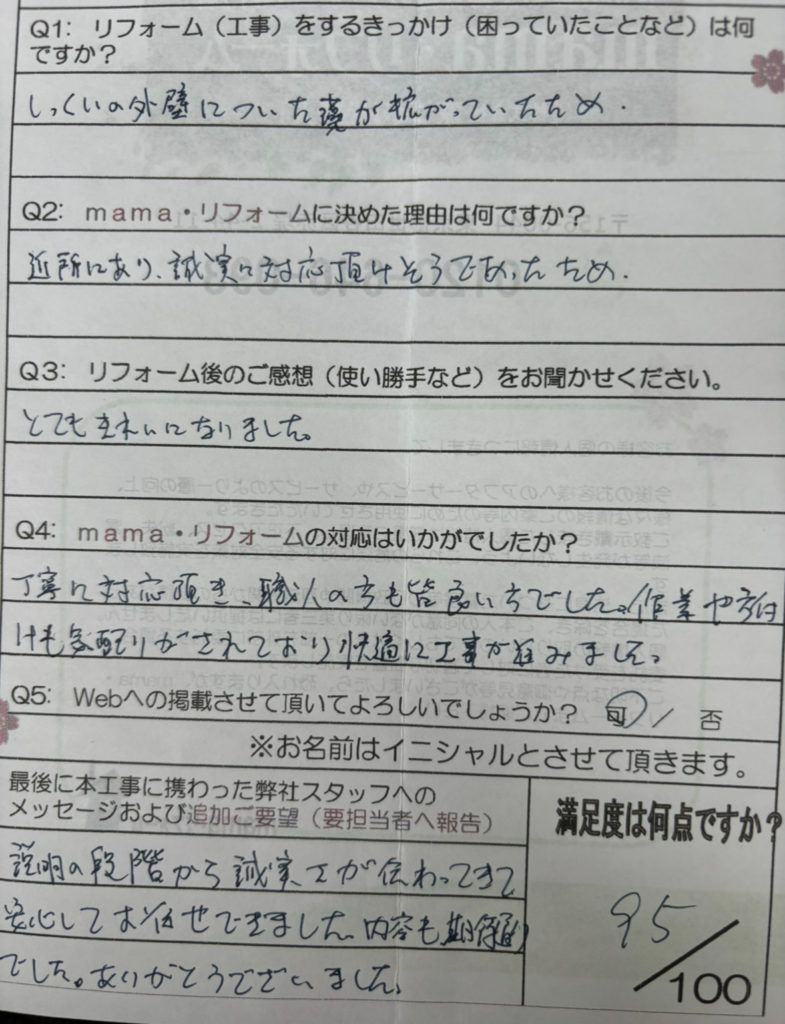 Q1: リフォーム（工事）をするきっかけ（困っていたことなど）は何
ですか？
しっくいの外壁についた藻が拡がっていたため.
Q2: mama・リフォームに決めた理由は何ですか？
近所にあり、誠実に対応頂けそうであったため.
Q3: リフォーム後のご感想（使い勝手など）をお聞かせください。
とてもきれいになりました。
Q4: mama・リフォームの対応はいかがでしたか？
丁寧に対応頂き、職人の方も皆良い方でした。作業や片付
けも気配りがされており快適に工事が進みました。
Q5: Webへの掲載させて頂いてよろしいでしょうか？ 可 / 否
※お名前はイニシャルとさせて頂きます。
最後に本工事に携わった弊社スタッフへの
メッセージおよび追加ご要望（要担当者へ報告）
説明の段階から誠実さが伝わってきて
安心してお任せできました。内容も期待通り
でした。ありがとうございました。
満足度は何点ですか？
95/100